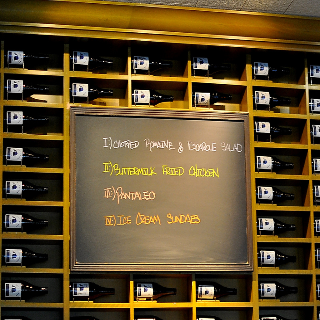 I) CHOPPED ROMAINE & ESCAROLE SALAD
II) BUTTERMILK FRIED CHICKEN
III) PANTALEO
IV) ICE CREAM SUNDAES